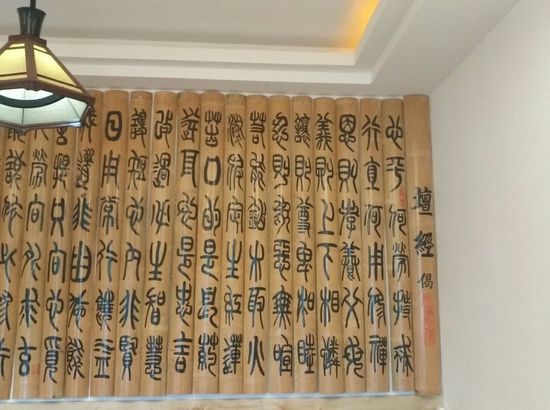 壇經偈
心平何勞持戒
行直何用修禪
恩則孝養父母
義則上下相憐
讓則尊卑和睦
忍則眾惡無喧
若能鑽木取火
淤泥定生紅蓮
苦口的是良藥
逆耳必是忠言
改過必生智慧
護短心內非賢
日用常行饒益
成道非由施錢
菩提只向心覓
勞向外求玄
說依此修行